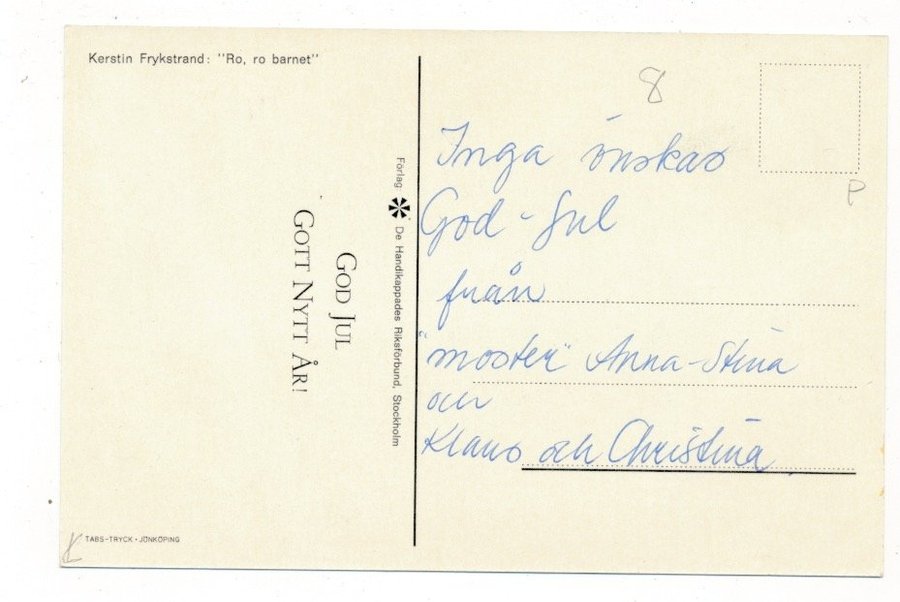 Kerstin Frykstrand: "Ro, ro barnet"
GOD JUL
GOTT NYTT ÅR!
Förlag De Handikappades Riksförbund, Stockholm
TABS-TRYCK · JÖNKÖPING
8
P
Inga önskas
God-Jul
från
"moster" Anna-Stina
och
Klaus och Christina